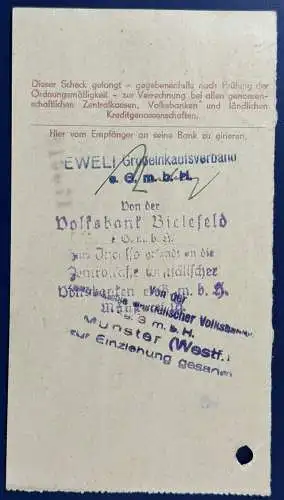 Dieser Scheck gelangt – gegebenenfalls nach Prüfung der
Ordnungsmäßigkeit – zur Verrechnung bei allen genossen-
schaftlichen Zentralkassen, Volksbanken und ländlichen
Kreditgenossenschaften.
Hier vom Empfänger an seine Bank zu girieren.
EWELI Großeinkaufsverband
e. G. m. b. H.
Von der
Volksbank Bielefeld
e.G.m.b.H.
zum Inkasso gesandt an die
Zentralkasse westfälischer
Volksbanken e.G.m.b.H.
Von der
westfälischer Volksbanken
e. G. m. b. H.
Münster (Westf.)
zur Einziehung gesandt